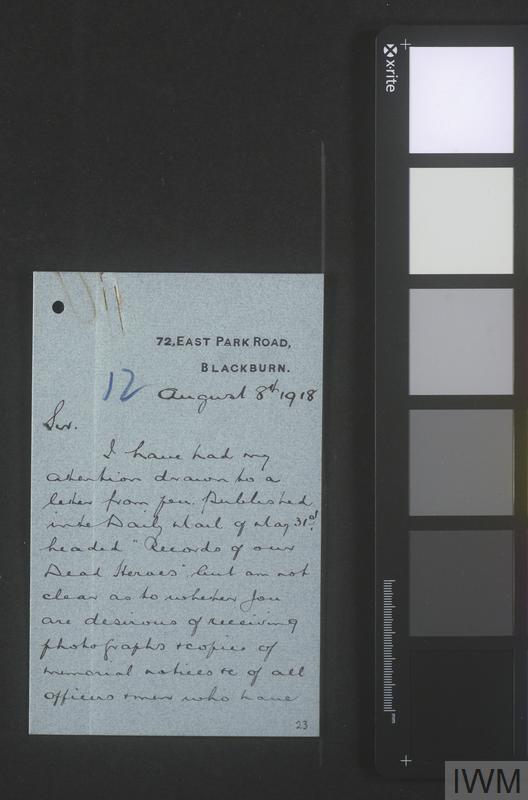 x·rite
72, EAST PARK ROAD,
BLACKBURN.
12
August 8th 1918
Sir.
I have had my
attention drawn to a
letter from you. Published
in the Daily Mail of May 31st.
headed "Records of our
Dead Heroes" but am not
clear as to whether you
are desirous of receiving
photographs & copies of
memorial notices &c of all
officers & men who have
23
mm
IWM